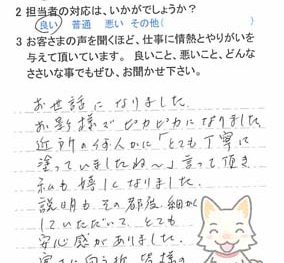 2 担当者の対応は、いかがでしょうか?
良い 普通 悪い その他(          )
3 お客さまの声を聞くほど、仕事に情熱とやりがいを
与えて頂いています。 良いこと、悪いこと、どんな
ささいな事でもぜひ、お聞かせ下さい。
お世話になりました。
お蔭様でピカピカになりました
近所の何人かに「とても丁寧に
塗っていましたね〜」言って頂き
私も嬉しくなりました。
説明も、その都度、細かく
していただいて、とても
安心感がありました。